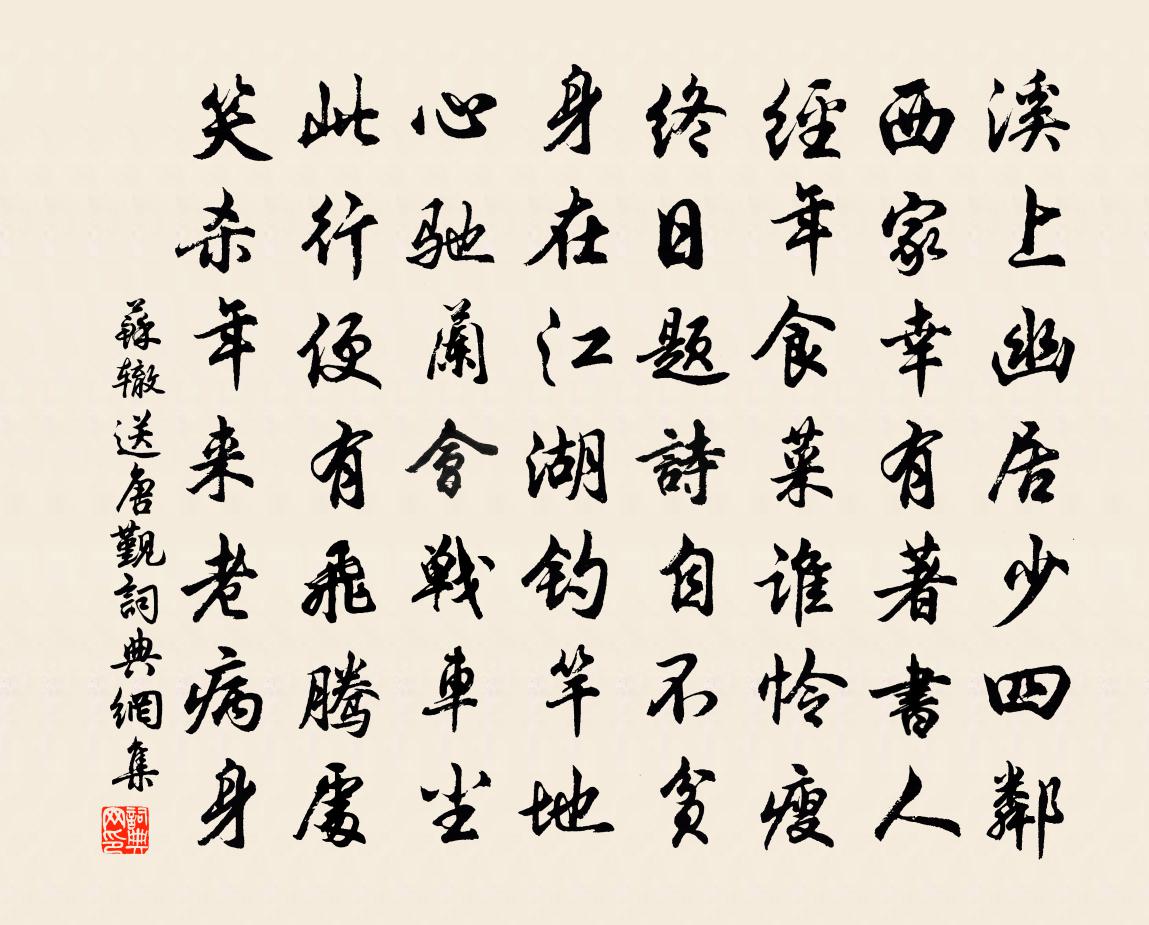 溪上幽居少四鄰
西家幸有著書人
經年食菜誰怜瘦
終日題詩自不貧
身在江湖釣竿地
心馳蘭會戰車尘
此行便有飛騰處
笑杀年年来老病身
蘇辙送唐覲詞典網集
詞典网印